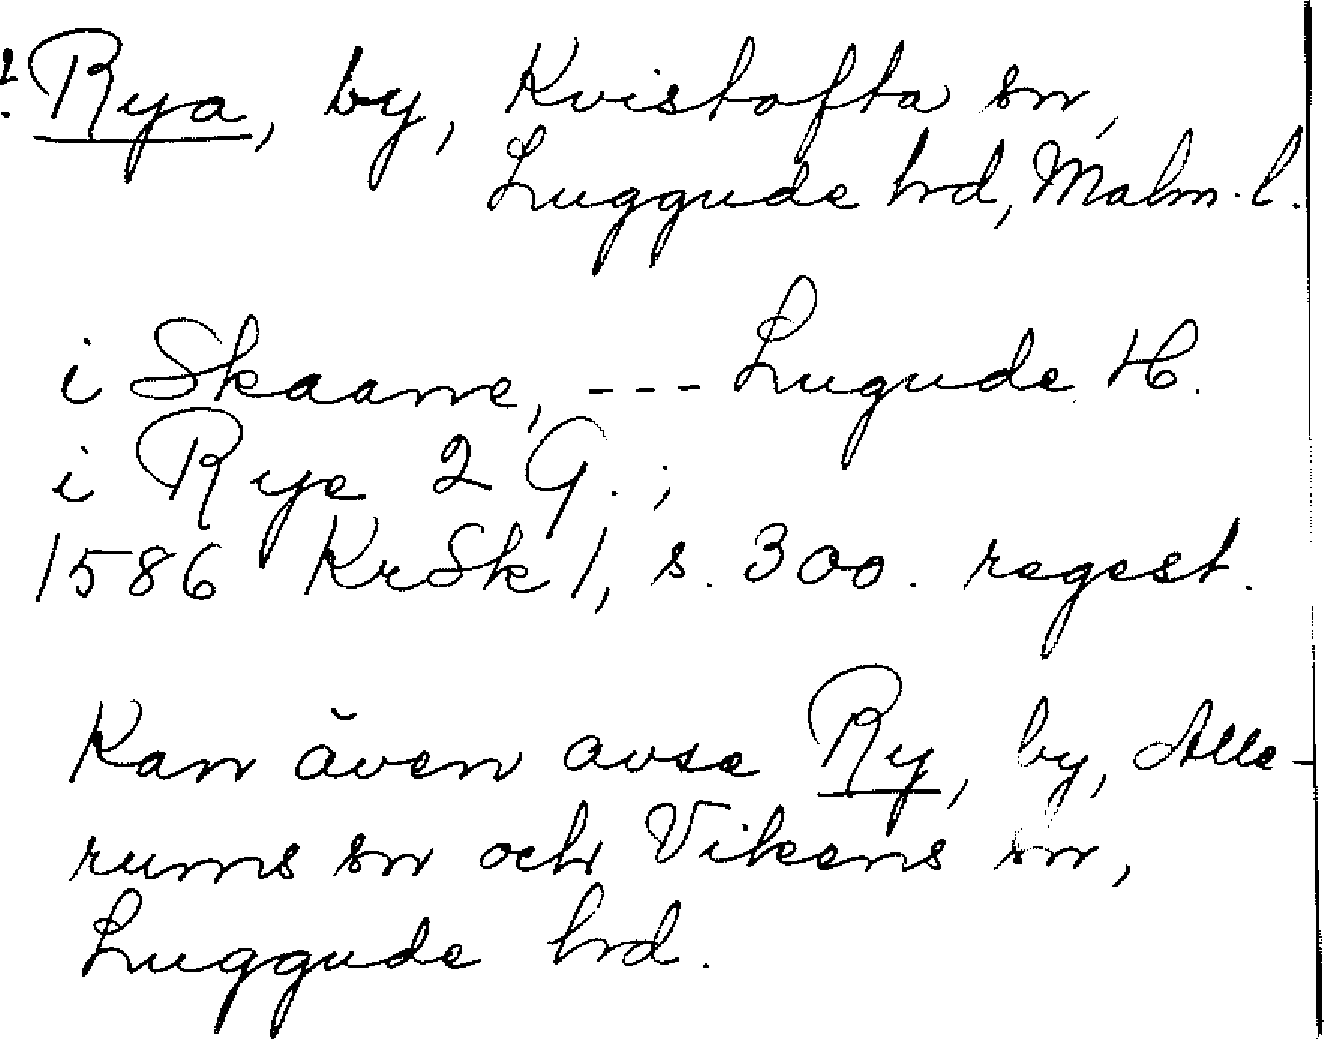 ? Rya, by, Kvistofta sn,
Luggude hrd, Malm. l.
i Skaane, --- Lugude H.
i Rye 2 G. ;
1586 KrSk 1, s. 300. regest.
Kan även avse Ry, by, Alle-
rums sn och Vikens sn,
Luggude hrd.